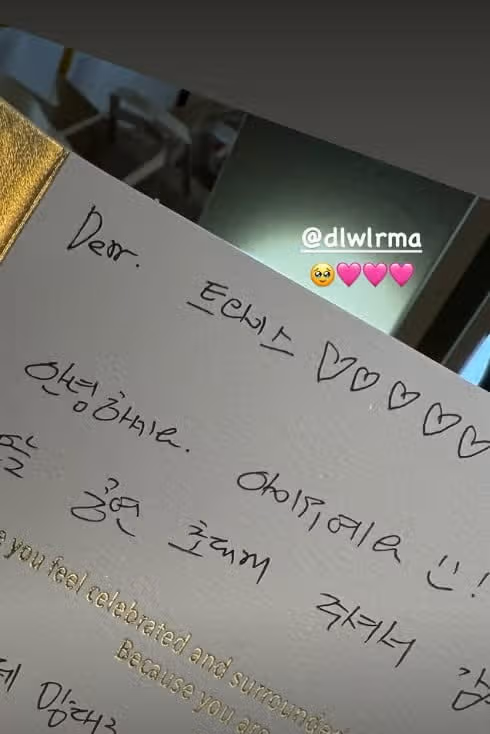 @dlwlrma
🥹🩷🩷🩷
Dear.
트와이스 ♡♡♡♡♡
안녕하세요. 아이유예요 :)!
공연 초대해 주셔서
you feel celebrated and surrounded
Because you are